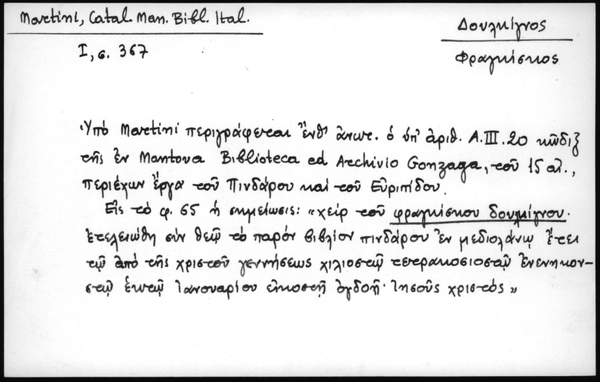 Martini, Catal. Man. Bibl. Ital.
I, σ. 367
Δουλκίγνος
Φραγκίσκος
Ὑπὸ Martini περιγράφεται ἔνθ' ἀνωτ. ὁ ὑπ' ἀριθ. A.III.20 κῶδιξ
τῆς ἐν Mantova Biblioteca ed Archivio Gonzaga, τοῦ 15 αἰ.,
περιέχων ἔργα τοῦ Πινδάρου καὶ τοῦ Εὐριπίδου.
Εἰς τὸ φ. 65 ἡ σημείωσις: «χεὶρ τοῦ φραγκίσκου δουλκίγνου.
ἐτελειώθη σὺν θεῷ τὸ παρὸν βιβλίον πινδάρου ἐν μεδιολάνῳ ἔτει
τῷ ἀπὸ τῆς χριστοῦ γεννήσεως χιλιοστῷ τετρακοσιοστῷ ἐνενηκον-
στῷ ἑπτῷ ἰανουαρίου εἰκοστῇ ὀγδοῇ· ἰησοῦς χριστὸς»